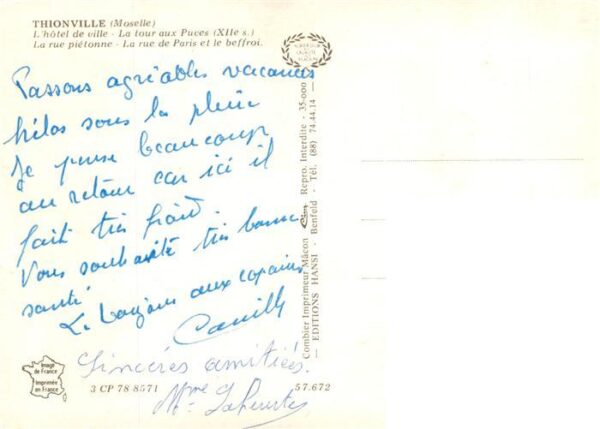 THIONVILLE (Moselle)
L'hôtel de ville - La tour aux Puces (XIIe s.)
La rue piétonne - La rue de Paris et le beffroi.
Passons agréables vacances
hélas sous la pluie
Je pense beaucoup
au retour car ici il
fait très froid.
Vous souhaite très bonne
santé
Le bonjour aux copains
Camille
Sincères amitiés.
Mme
Image de France
Imprimée en France
3 CP 78 8571
57.672
Combier Imprimeur Mâcon Cim Repro. Interdite - 35-000
— EDITIONS HANSI - Benfeld - Tél. (88) 74.44.14 —